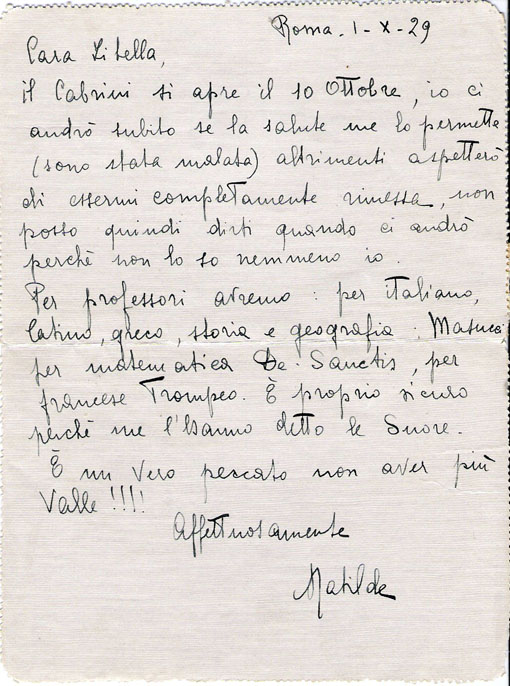 Roma. 1-X-29
Cara Libella,
il Cabrini si apre il 10 Ottobre, io ci
andrò subito se la salute me lo permette
(sono stata malata) altrimenti aspetterò
di essermi completamente rimessa, non
posso quindi dirti quando ci andrò
perchè non lo so nemmeno io.
Per professori avremo: per italiano,
latino, greco, storia e geografia: Masuca
per matematica De-Sanctis, per
francese Trompeo. È proprio sicuro
perchè me l'hanno detto le Suore.
È un vero peccato non aver più
Valle!!!!
Affettuosamente
Matilde